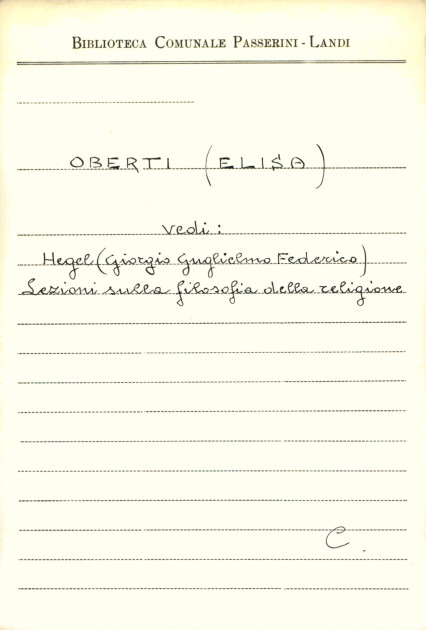 BIBLIOTECA COMUNALE PASSERINI - LANDI
OBERTI (ELISA)
vedi:
Hegel (Giorgio Guglielmo Federico)
Lezioni sulla filosofia della religione
C.